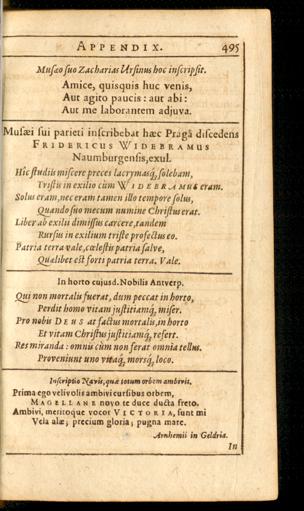 APPENDIX. 495
Musæo suo Zacharias Ursinus hoc inscripsit.
Amice, quisquis huc venis,
Aut agito paucis: aut abi:
Aut me laborantem adjuva.
Musæi sui parieti inscribebat hæc Pragâ discedens
FRIDERICUS WIDEBRAMUS
Naumburgensis, exul.
Hîc studiis miscere preces lacrymasq́; solebam,
Tristis in exilio cùm WIDEBRAMUS eram.
Solus eram, nec eram tamen illo tempore solus,
Quando suo mecum numine Christus erat.
Liber ab exilii dimissus carcere, tandem
Rursus in exilium triste profectus eo.
Patria terra vale, cœlestis patria salve,
Quælibet est forti patria terra. Vale.
In horto cujusd. Nobilis Antverp.
Qui non mortalis fuerat, dum peccat in horto,
Perdit homo vitam justitiamq́; miser.
Pro nobis DEUS at factus mortalis, in horto
Et vitam Christus justitiamq́; refert.
Res miranda: omnis cùm non ferat omnia tellus.
Proveniunt uno vitaq́; morsq́; loco.
Inscriptio Navis, quæ totum orbem ambivit.
Prima ego velivolis ambivi cursibus orbem,
MAGELLANE novo te duce ducta freto.
Ambivi, meritoque vocor VICTORIA, sunt mi
Vela alæ; precium gloria; pugna mare.
Arnhemii in Geldria.
In